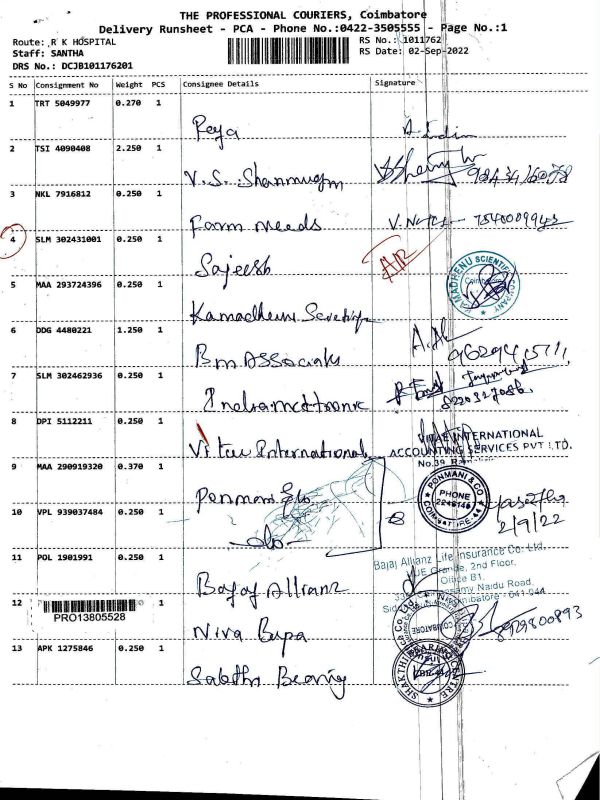 THE PROFESSIONAL COURIERS, Coimbatore
Delivery Runsheet - PCA - Phone No.:0422-3505555 - Page No.:1
Route: R K HOSPITAL
RS No.: 1011762
Staff: SANTHA
RS Date: 02-Sep-2022
DRS No.: DCJB101176201
S No Consignment No Weight PCS Consignee Details Signature
1 TRT 5049977 0.270 1
Reya
2 TSI 4090408 2.250 1
V.S. Shanmugam
3 NKL 7916812 0.250 1
Farm needs
4 SLM 302431001 0.250 1
Sajeesh
5 MAA 293724396 0.250 1
KAMADHENU SCIENTIFIC COMPANY
Coimbatore
Kamadhenu
6 DDG 4480221 1.250 1
Bm Associats
7 SLM 302462936 0.250 1
8 DPI 5112211 0.250 1
International
VITAE INTERNATIONAL
ACCOUNTING SERVICES PVT LTD.
No.39
9 MAA 290919320 0.370 1
Ponmani &Co
PONMANI & CO
PHONE
COIMBATORE-44
10 VPL 939037484 0.250 1
-do-
2/9/22
11 POL 1901991 0.250 1
Bajaj Allianz Life Insurance Co. Ltd.
2nd Floor,
Office B1,
Naidu Road,
Bajaj Allianz
12 PRO13805528 1
Niva Bupa
8929800893
13 APK 1275846 0.250 1
SHAKTHI BEARING CENTRE
Sakthi Bearing